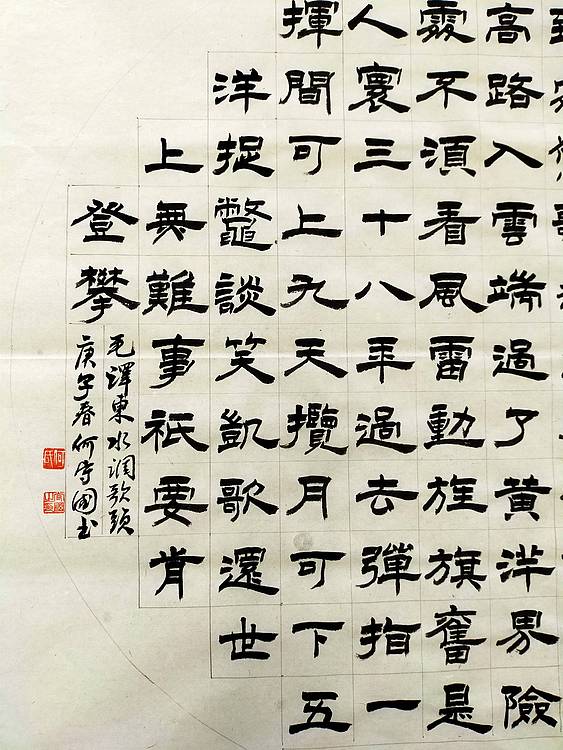 高路入雲端過了黃洋界險
處不須看風雷動旌旗奮是
人寰三十八年過去彈指一
揮間可上九天攬月可下五
洋捉鱉談笑凱歌還世
上無難事祇要肯
登攀
毛澤東水調歌頭
庚午春何守國书